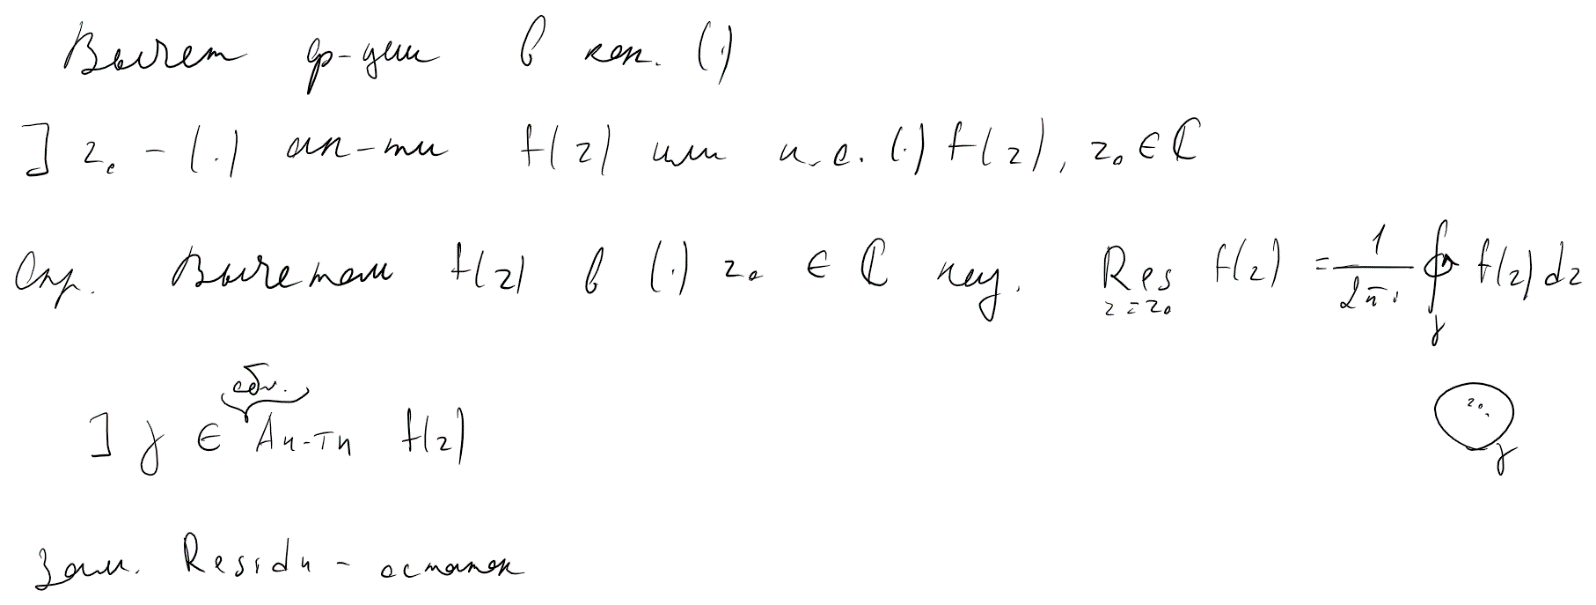 Вычет ф-ции в кон. (·)
] z₀ - (·) ан-ти f(z) или и.о. (·) f(z), z₀ ∈ ℂ
Опр. Вычетом f(z) в (·) z₀ ∈ ℂ наз. Res_{z=z₀} f(z) = 1/(2πi) ∮_γ f(z) dz
обл. z₀
] γ ∈ Ан-ти f(z) γ
Зам. Residu - остаток